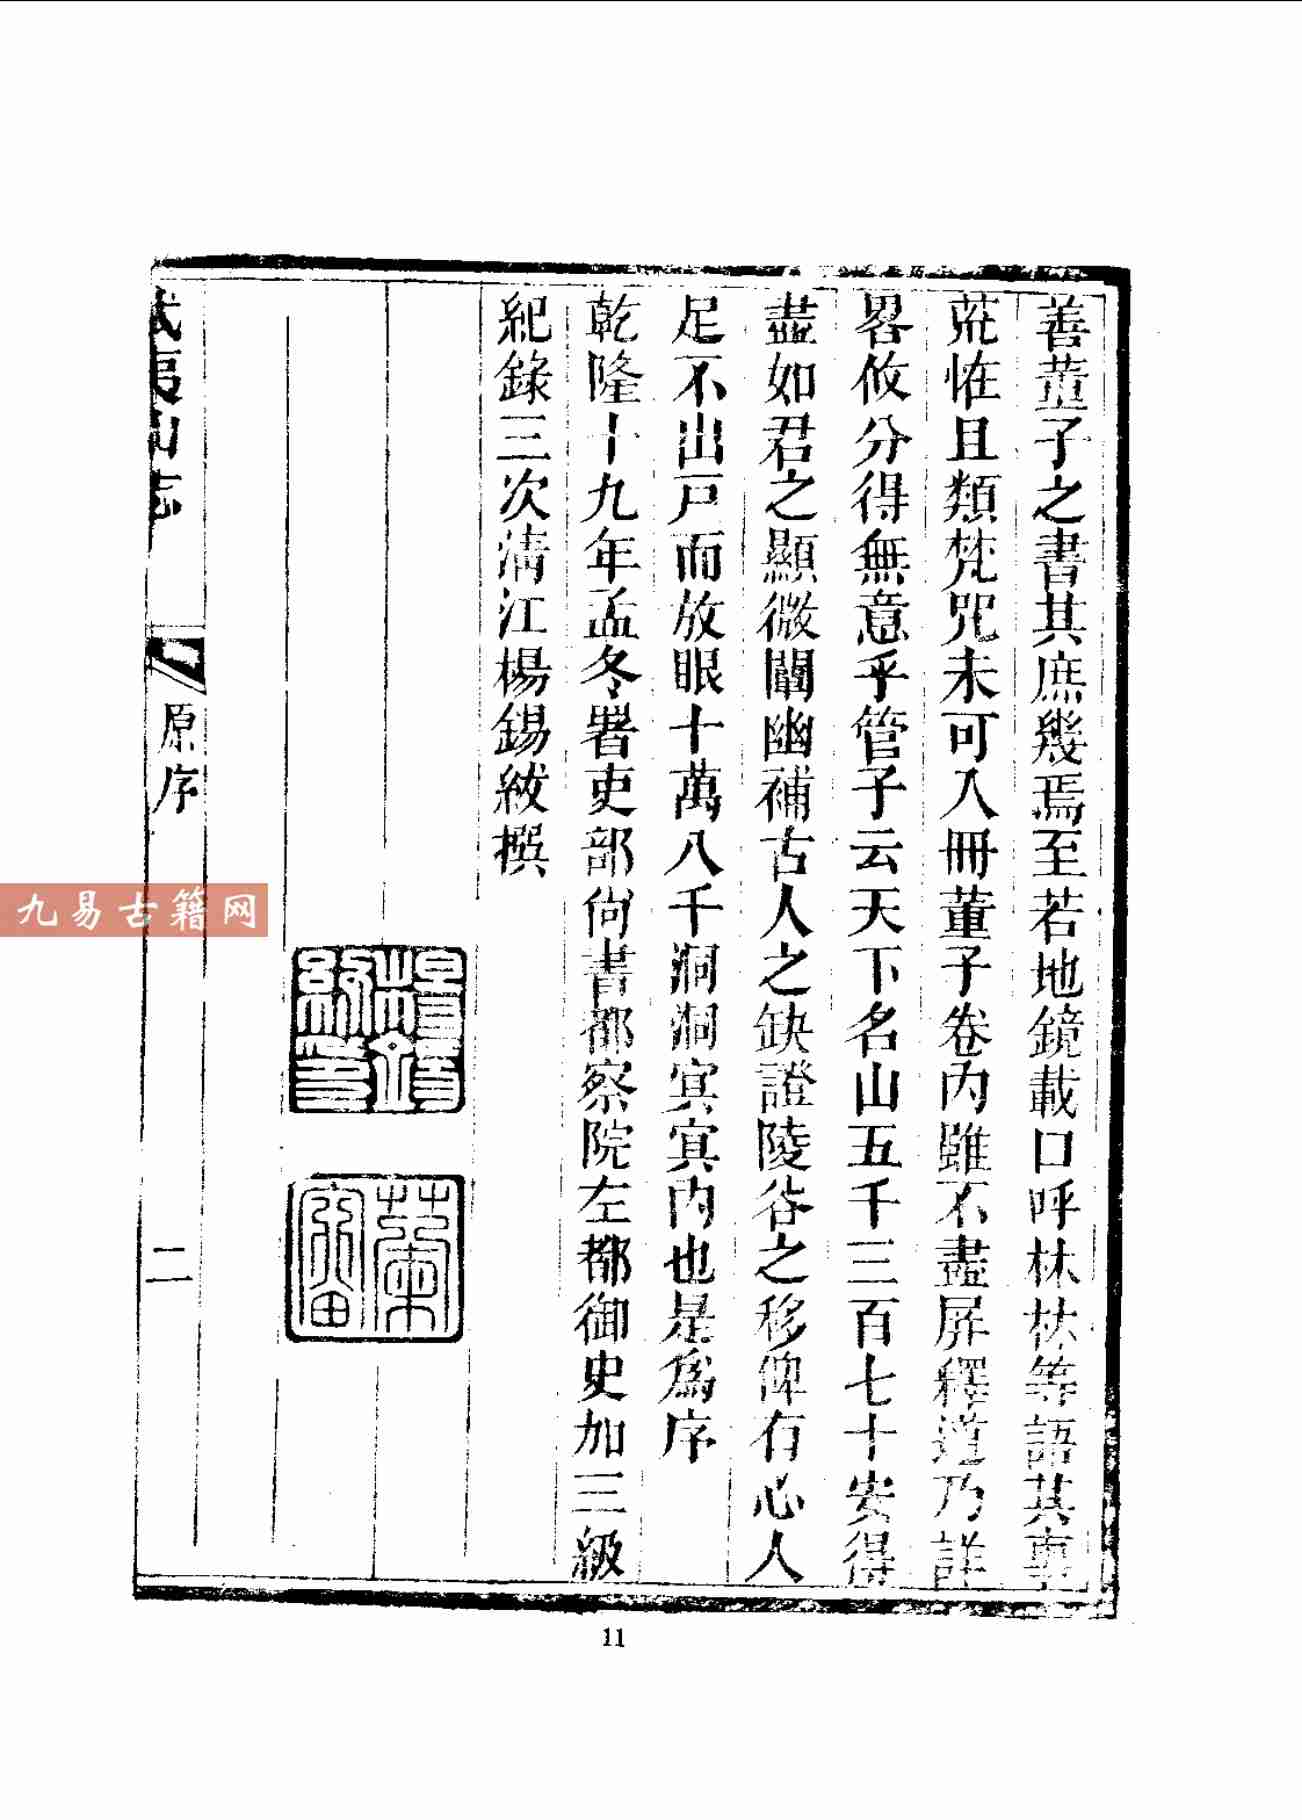 善董子之書其庶幾焉至若地鏡載口呼林林等語其事
荒怪且類梵咒未可入冊董子卷內雖不盡屏釋道乃詳
畧攸分得無意乎管子云天下名山五千三百七十安得
盡如君之顯微闡幽補古人之缺證陵谷之移俾有心人
足不出戸而放眼十萬八千洞洞㝠㝠內也是爲序
乾隆十九年孟冬署吏部尙書都察院左都御史加三級
紀錄三次淸江楊錫紱撰
楊錫紱印
武夷山志
原序
二
九易古籍网
11